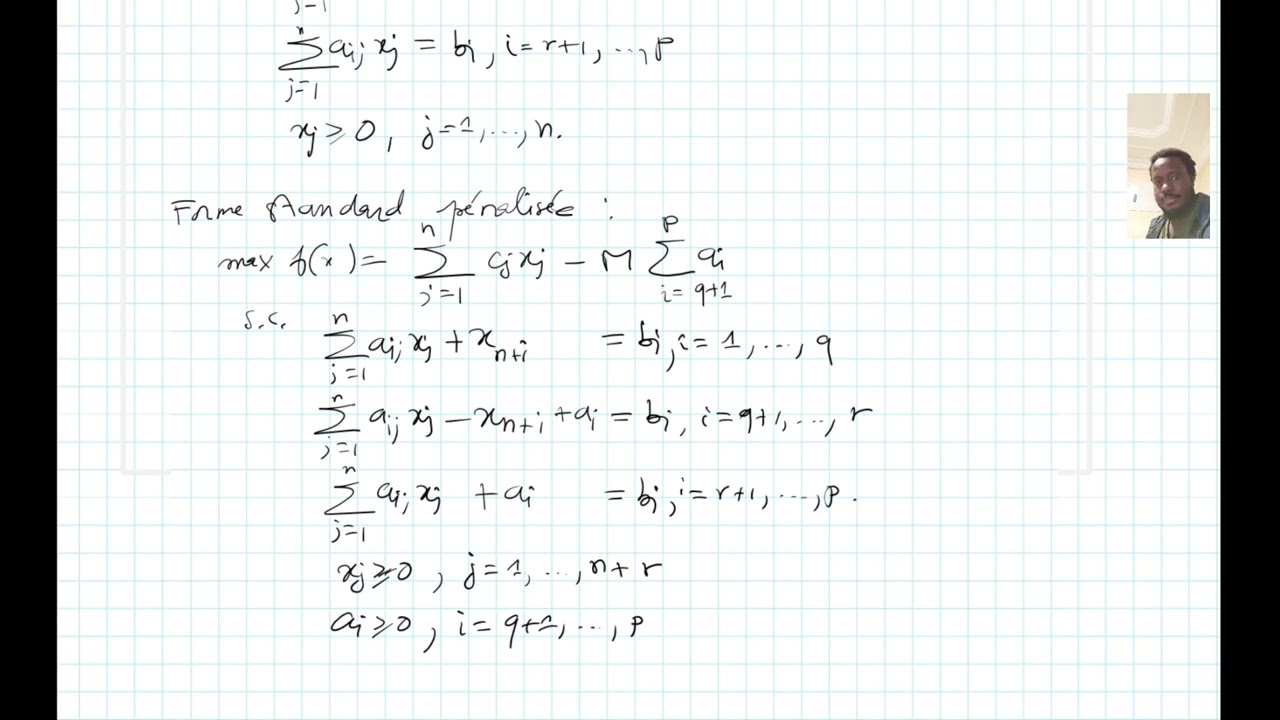 j=1
n
∑ aij xj = bi, i=r+1, ..., p
j=1
xj ≥ 0, j=1, ..., n.
Forme standard pénalisée :
n p
max f(x) = ∑ cj xj – M ∑ ai
j=1 i=q+1
s.c. n
∑ aij xj + xn+i = bi, i=1, ..., q
j=1
n
∑ aij xj – xn+i + ai = bi, i=q+1, ..., r
j=1
n
∑ aij xj + ai = bi, i=r+1, ..., p.
j=1
xj ≥ 0, j=1, ..., n+r
ai ≥ 0, i=q+1, ..., p